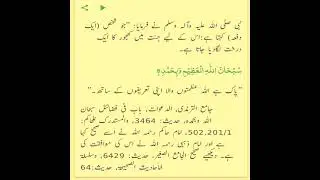 نبی صلی اللہ علیہ وآلہ وسلم نے فرمایا: "جو شخص (ایک
دفعہ) کہتا ہے:اس کے لیے جنت میں کھجور کا ایک
درخت لگادیا جاتا ہے۔
سُبْحَانَ اللّٰهِ الْعَظِيْمِ وَبِحَمْدِهٖ
"پاک ہے اللہ عظمتوں والا اپنی تعریفوں کے ساتھ۔"
جامع الترمذی، الدعوات، باب فی فضائل سبحان
اللہ وبحمدہ، حدیث: 3464، والمستدرک للحاکم
502,201/1. امام حاکم رحمہ اللہ نے اسے صحیح کہا
ہے اور امام ذہبی رحمہ اللہ نے اس کی موافقت کی
ہے۔ دیکھیے صحیح الجامع الصغیر، حدیث: 6429، وسلسلۃ
الاحادیث الصحیحۃ، حدیث:64